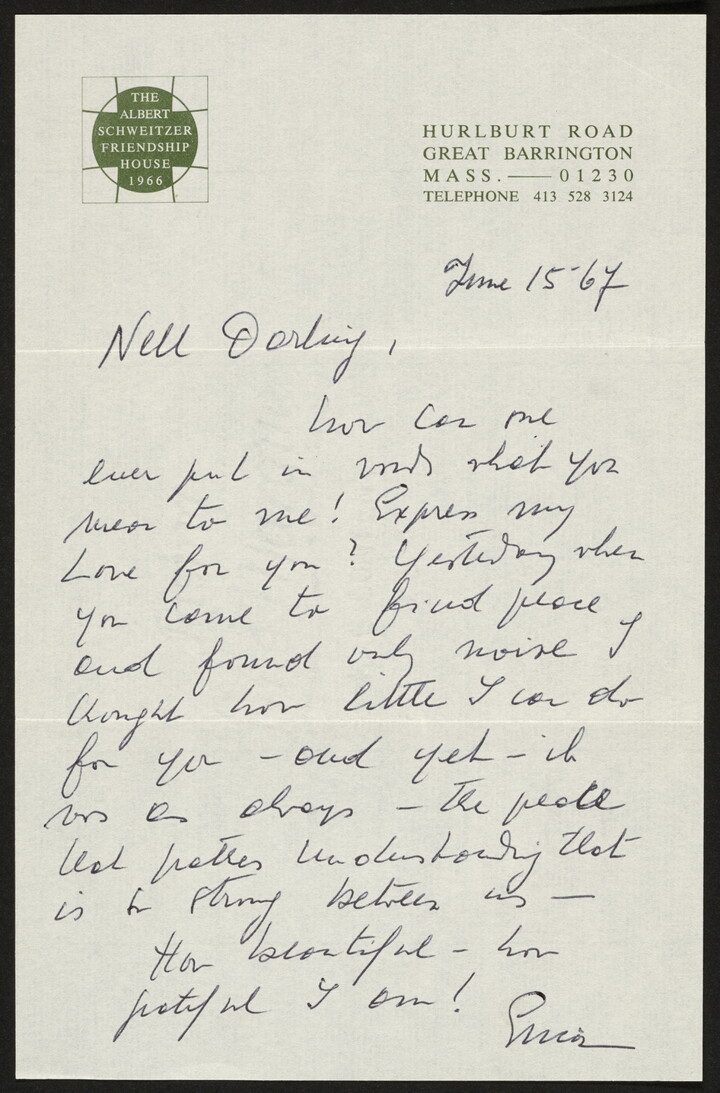 THE
ALBERT
SCHWEITZER
FRIENDSHIP
HOUSE
1966
HURLBURT ROAD
GREAT BARRINGTON
MASS. — 01230
TELEPHONE 413 528 3124
June 15-67
Nell Darling,
how can one
ever put in words what you
mean to me! Express my
Love for you? Yesterday when
you came to find peace
and found only noise I
thought how little I can do
for you - and yet - it
was as always - the peace
that passes understanding that
is so strong between us -
How beautiful - how
grateful I am!
Erica